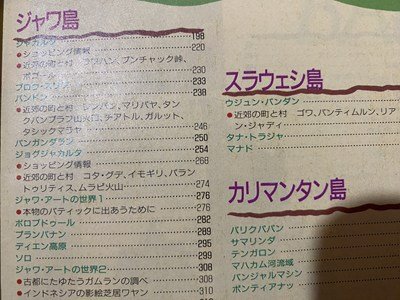 ジャワ島
ジャカルタ 198
●ショッピング情報 220
●近郊の町と村 プンチャック峠、
ボゴール 230
プロウ・スリブ 233
バンドン 238
●近郊の町と村 レンバン、マリバヤ、タン
クバンプラフ山火口、チアトル、ガルット、
タシックマラヤ 246
パンガンダラン 250
ジョグジャカルタ 254
●ショッピング情報 268
●近郊の町と村 コタ・グデ、イモギリ、パラン
トゥリティス、ムラピ火山 274
ジャワ・アートの世界1 276
●本物のバティックに出あうために 276
ボロブドゥール 282
プランバナン 289
ディエン高原 295
ソロ 299
ジャワ・アートの世界2 308
●古都にたゆたうガムランの調べ 308
●インドネシアの影絵芝居ワヤン 310
スラウェシ島
ウジュン・パンダン
●近郊の町と村 ゴワ、バンティムルン、リア
ン・ジャディ
タナ・トラジャ
マナド
カリマンタン島
バリクパパン
サマリンダ
テンガロン
マハカム河流域
バンジャルマシン
ポンティアナッ